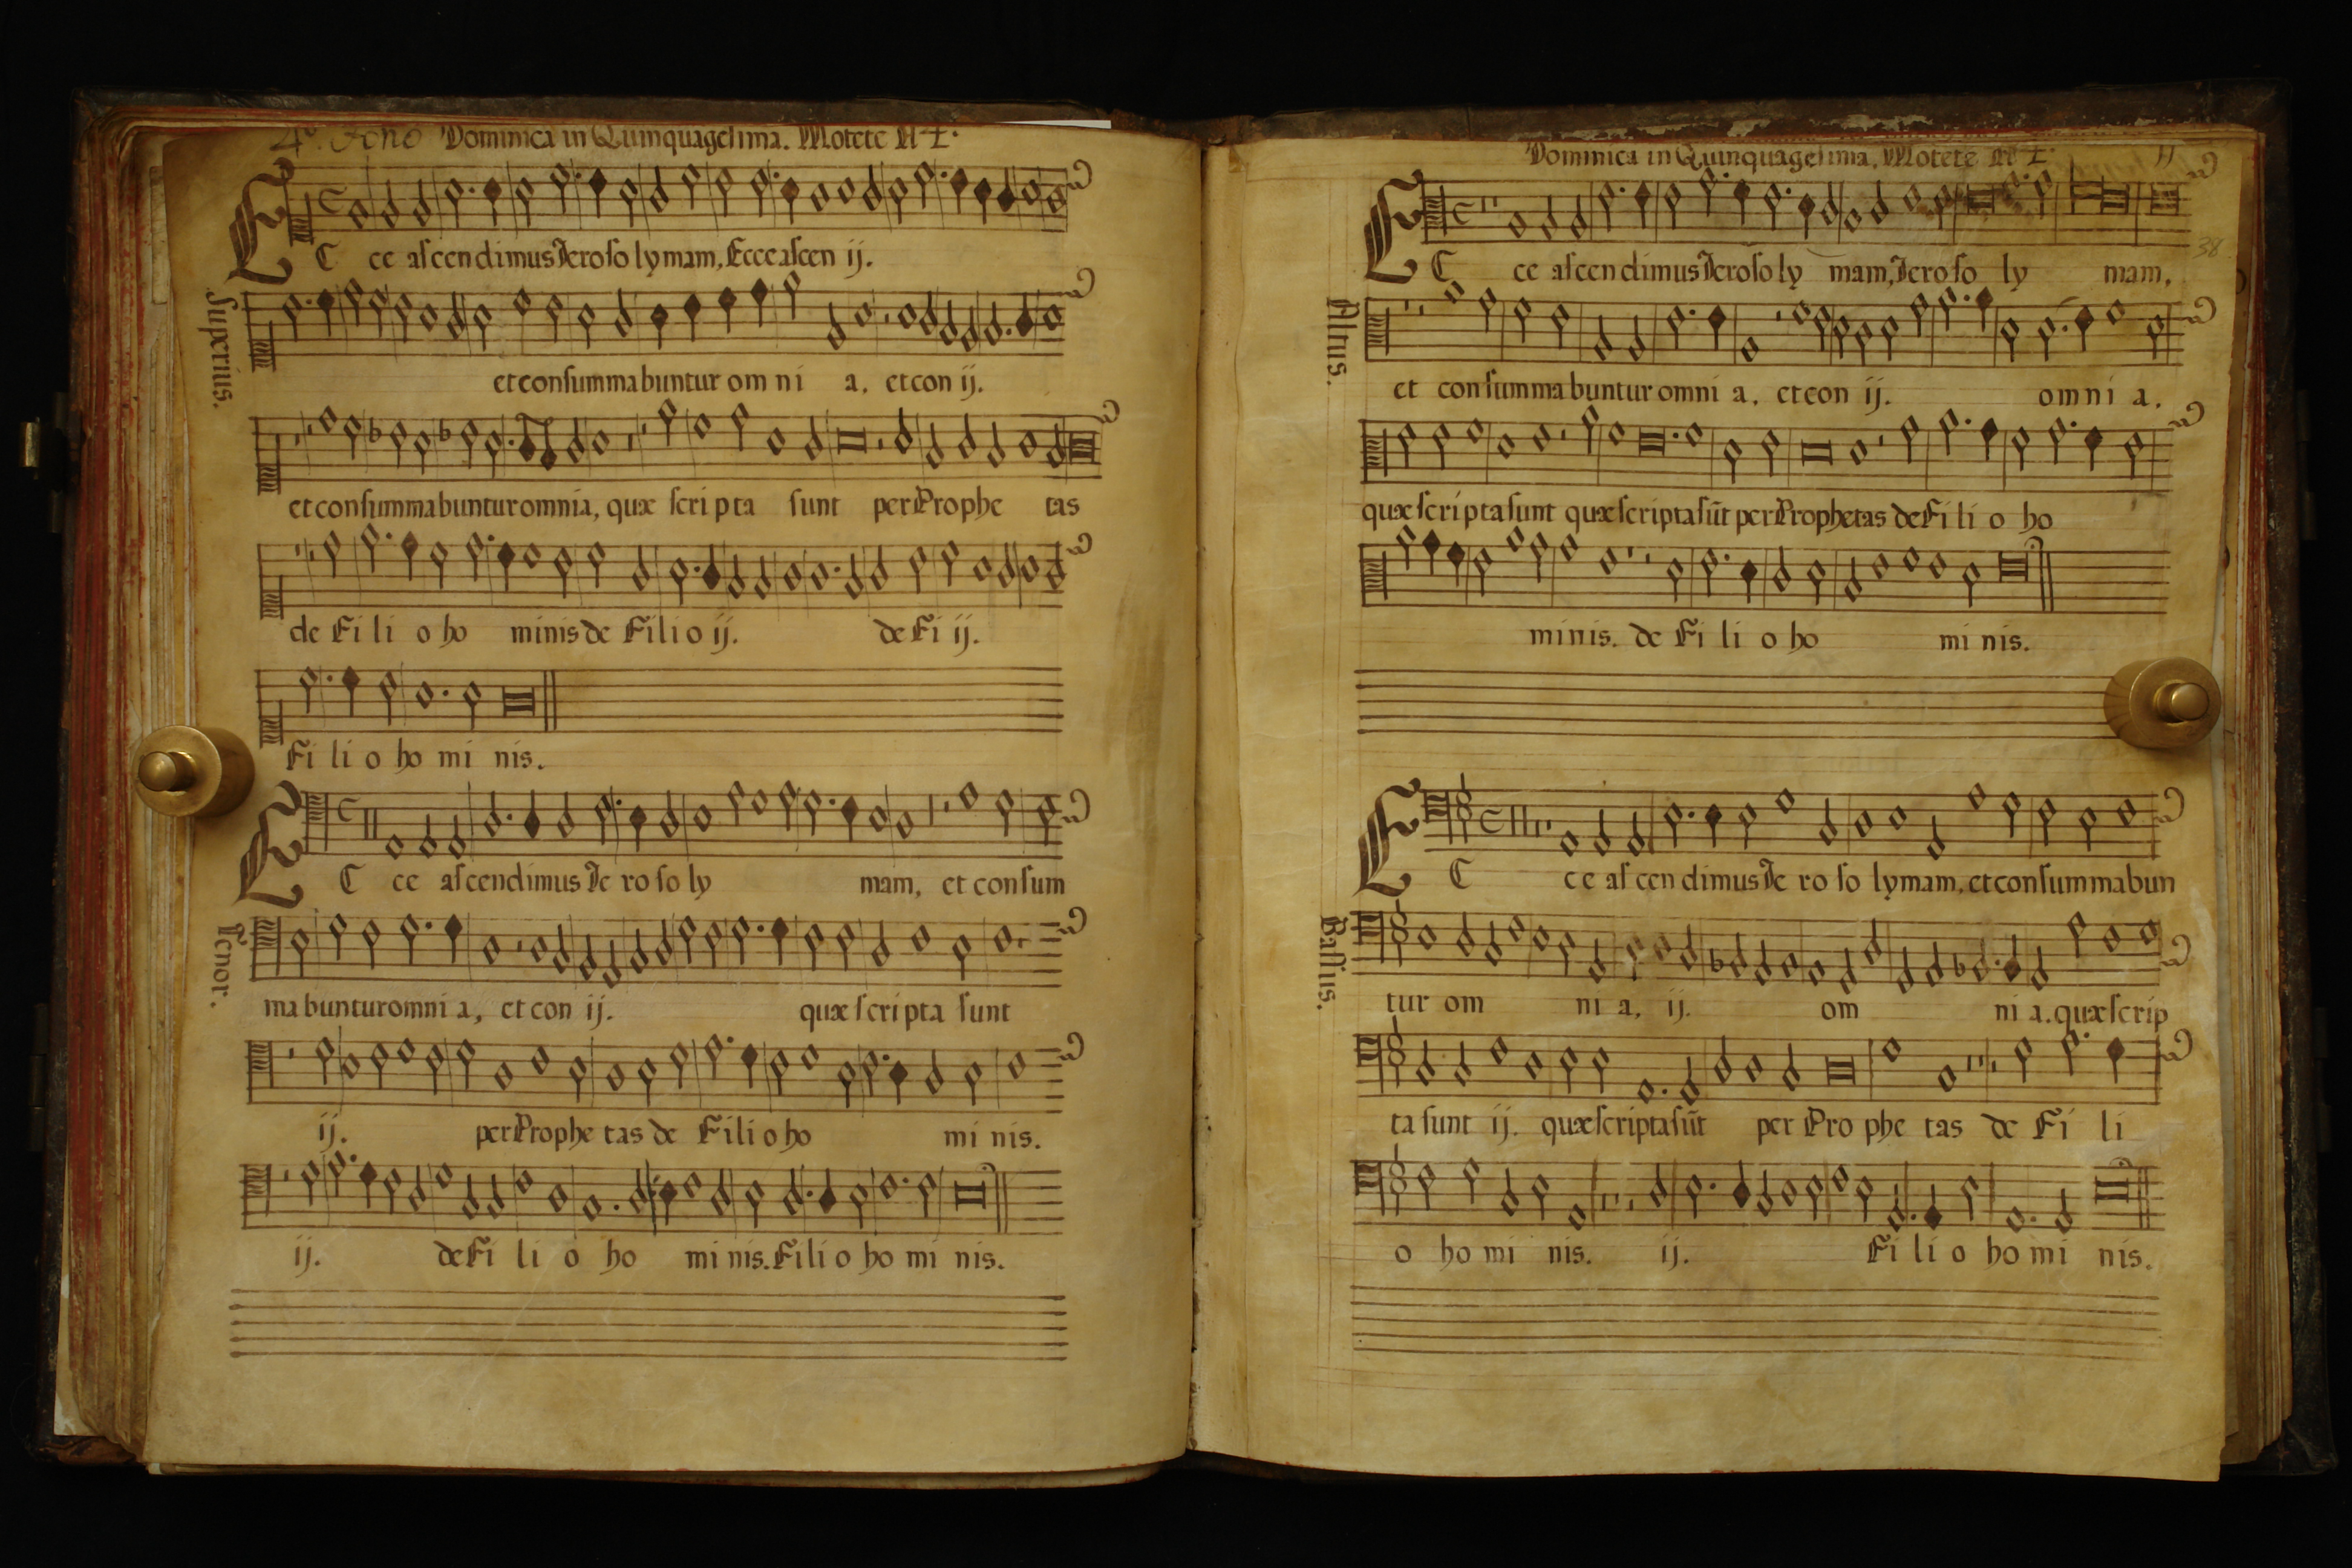 4º. tono Dominica in Quinquagesima. Motete A 4.
ECce ascendimus Ierosolymam, Ecce ascen ij.
Superius.
et consummabuntur omnia. et con ij.
et consummabuntur omnia, quæ scripta sunt per Prophetas
de Filio hominis de Filio ij. de Fi ij.
Filio hominis.
ECce ascendimus Ierosolymam, et consum
Tenor.
mabuntur omnia, et con ij. quæ scripta sunt
ij. per Prophetas de Filio hominis.
ij. de Filio hominis. Filio hominis.
Dominica in Quinquagesima. Motete A 4.
38
ECce ascendimus Ierosolymam, Ierosolymam,
Altus.
et consummabuntur omnia. et con ij. omnia.
quæ scripta sunt quæ scripta sūt per Prophetas de Filio ho
minis. de Filio hominis.
ECce ascendimus Ierosolymam, et consummabun
Bassus.
tur omnia, ij. omnia. quæ scrip
ta sunt ij. quæ scripta sūt per Prophetas de Fili
o hominis. ij. Filio hominis.